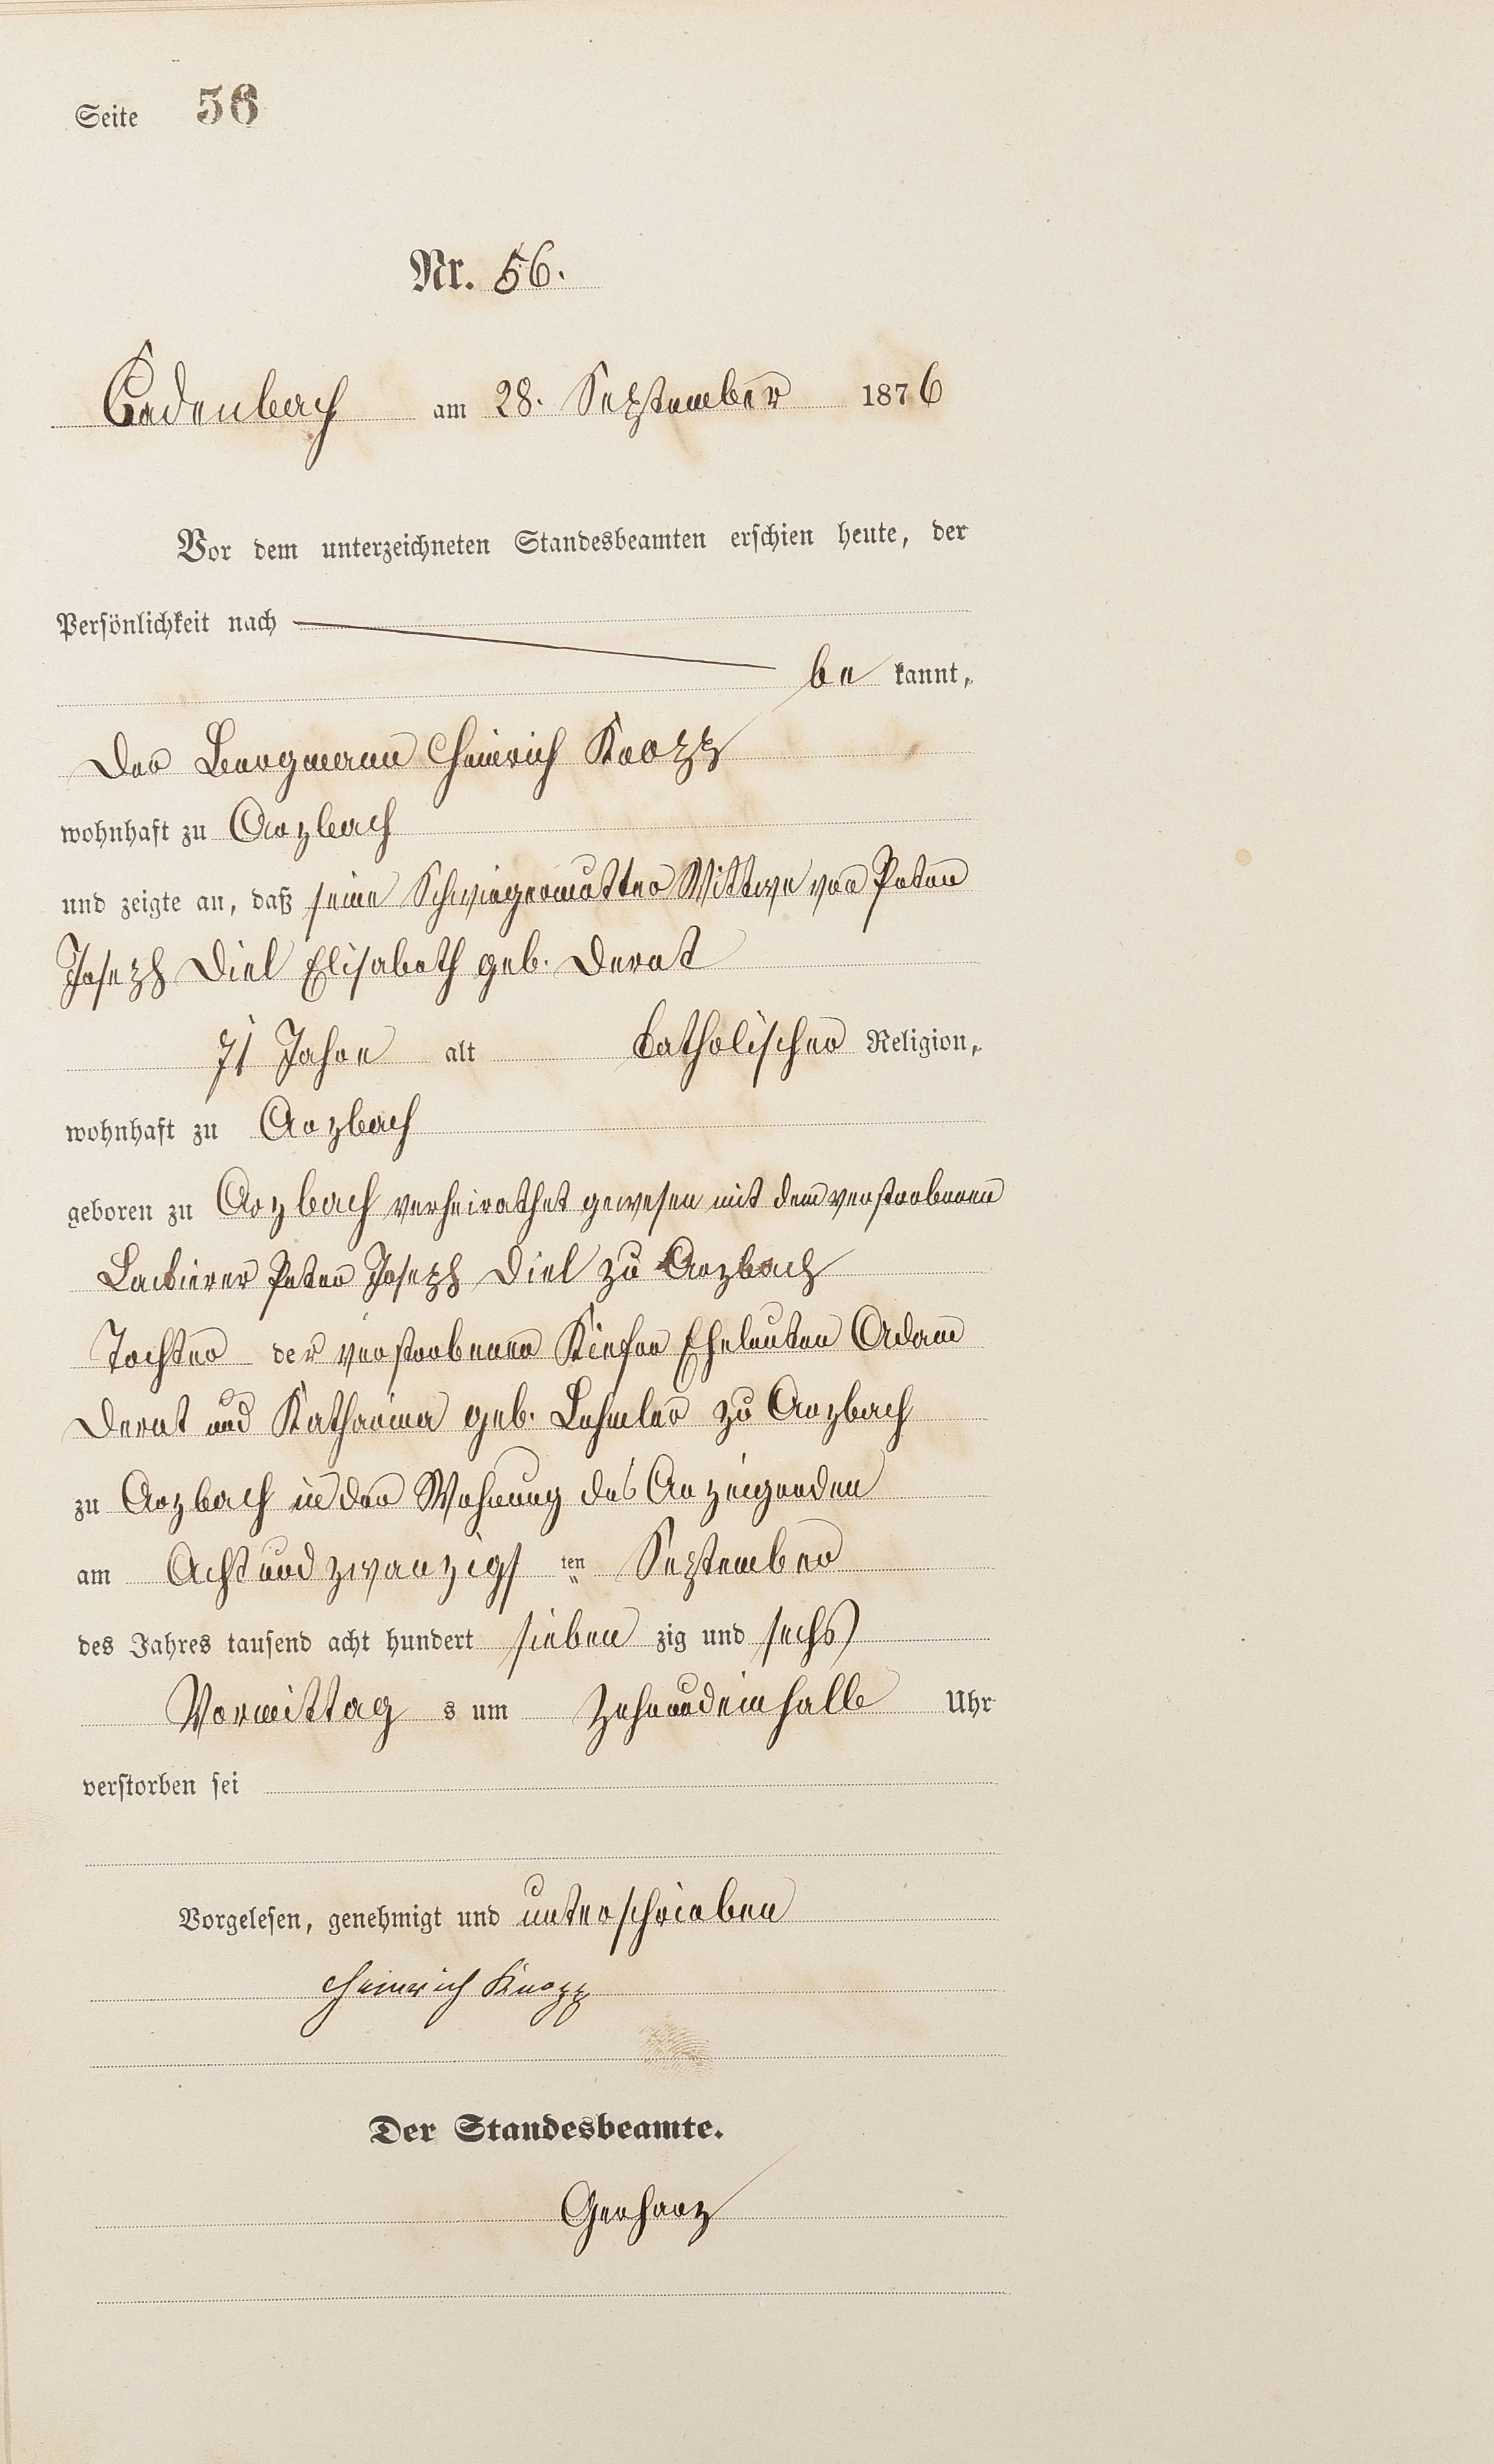 Seite 56
Nr. 56.
Cadenbach am 28. September 1876
Vor dem unterzeichneten Standesbeamten erschien heute, der
Persönlichkeit nach
be kannt,
der Bergmann Heinrich Knopp
wohnhaft zu Arzbach
und zeigte an, daß seine Schwiegermutter Wittwe von Peter
Joseph Diel Elisabeth geb.
71 Jahre alt katholischer Religion,
wohnhaft zu Arzbach
geboren zu Arzbach verheirathet gewesen mit dem verstorbenen
Peter Joseph Diel zu Arzbach
Tochter der verstorbenen Kiefer Eheleuten Adam
und Katharina geb. zu Arzbach
zu Arzbach in der Wohnung des Anzeigenden
am Acht und zwanzigs ten September
des Jahres tausend acht hundert sieben zig und sechs
Vormittag s um Zehnundeinhalb Uhr
verstorben sei
Vorgelesen, genehmigt und unterschrieben
Heinrich Knopp
Der Standesbeamte.
Gerharz